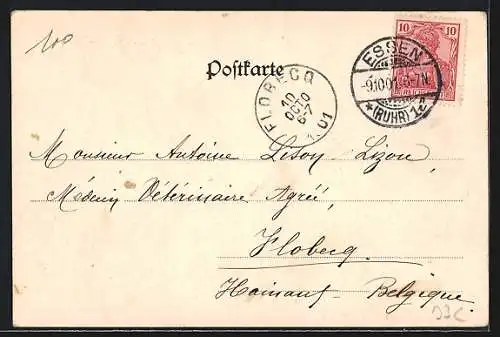 100
10 10
ESSEN
-9.10.01.6-7N.
*(RUHR) 1e
Postkarte
FLOBECQ
10
OCTO
6-7
1901
Monsieur Antoine Lison Lizon,
Médecin Vétérinaire Agréé,
Flobecq.
Hainaut Belgique.